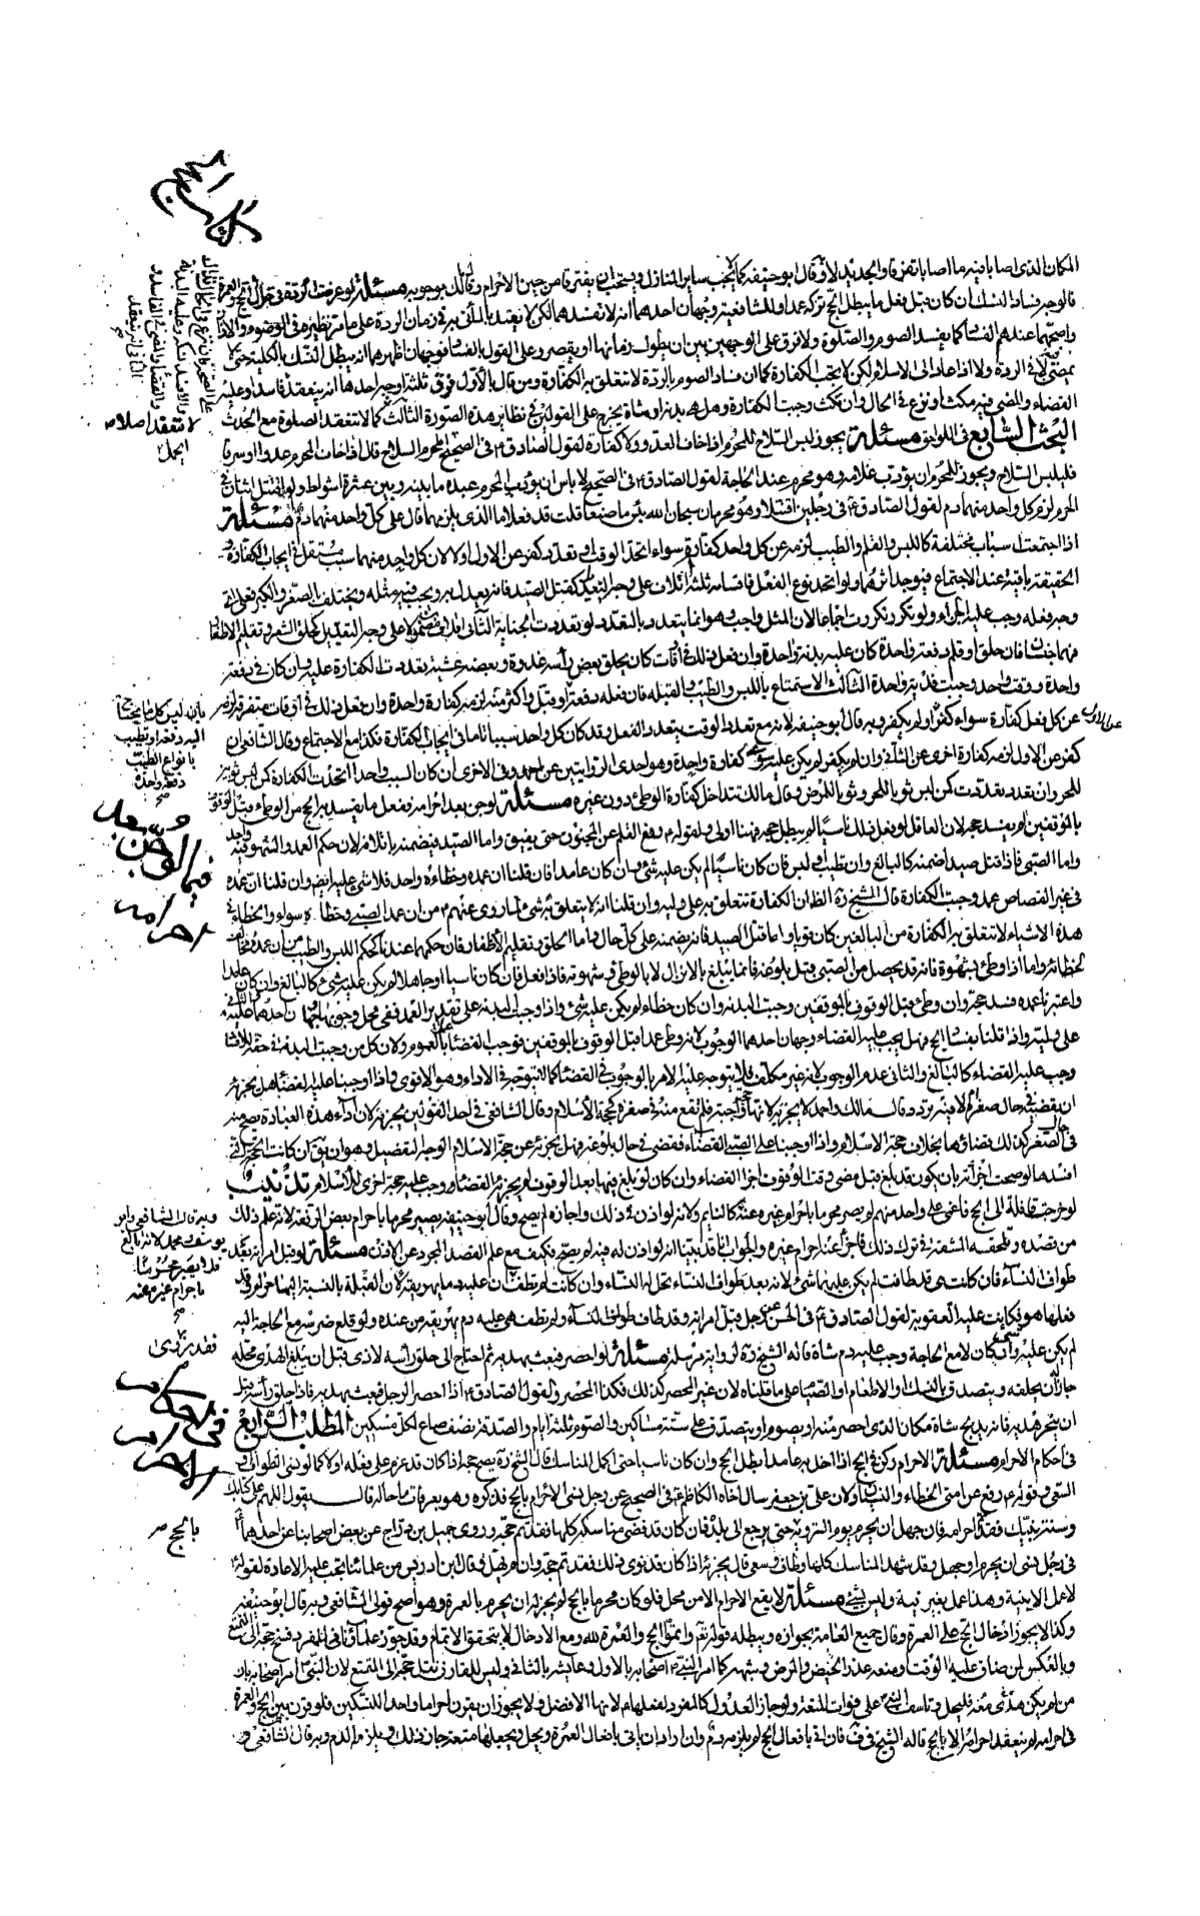 المكان الذى اصابا فيه ما اصابا تفرقا والجديد لا وقال ابو حنيفة كما لا يجب ساير المنازل ويستحب ان يفترقا من حين الاحرام وقال بوجوبه مسئلة لو عرضت الردة فى خلال الحج والعمرة
فالوجه فساد النسك ان كان قبل فعل ما يبطل الحج تركه عمدا وللشافعية وجهان احدهما انه لا يفسدهما لكن لا يعتد بالمأتى به فى زمان الردة على ما مر نظيره فى الوضوء والاذان
واصحهما عندهم الفساد كما يفسد الصوم والصلوة ولا فرق على الوجهين بين ان يطول زمانها او يقصر وعلى القول بالفساد فوجهان اظهرهما انه يبطل النسك بالكلية حتى لا
يمضى لا فى الردة ولا اذا عاد الى الاسلام لكن لا يجب الكفارة كما ان فساد الصوم بالردة لا تتعلق به الكفارة ومن قال بالاول فرق ثلثة اوجه احدها انه ينعقد فاسدا وعليه
القضاء والمضى فيه مكث او نزع فى الحال وان مكث وجبت الكفارة وهل هى بدنة او شاة يخرج على القولين فى نظاير هذه الصورة الثالث كما لا تنعقد الصلوة مع الحدث
البحث السابع فى اللواحق مسئلة يجوز لبس السلاح للمحرم اذا خاف العدو ولا كفارة لقول الصادق ع فى الصحيح المحرم السلاح قال اذا خاف المحرم عدوا او سرقا
فليلبس السلاح ويجوز للمحرم ان يؤدب غلامه وهو محرم عند الحاجة لقول الصادق ع فى الصحيح لا باس ان يؤدب المحرم عبده ما بينه وبين عشرة اسواط ولو اقتتل اثنان فى
الحرم لزم كل واحد منهما دم لقول الصادق ع فى رجلين اقتتلا وهو محرمان سبحان الله بئس ما صنعا قلت قد فعلا ما الذى يلزمهما قال على كل واحد منهما دم مسئلة
اذا اجتمعت اسباب مختلفة كاللبس والقلم والطيب لزمه عن كل واحد كفارة سواء اتحد الوقت او تعدد كفر عن الاول او لا لان كل واحد منهما سبب مستقل فى ايجاب الكفارة و
الحقيقة باقية عند الاجتماع فيوجد اثرهما ولو اتحد نوع الفعل فاقسامه ثلثة اتلاف على وجه التعديل كقتل الصيد فانه يعدل به ويجب فيه مثله ويختلف بالصغر والكبر فعلى اى
وجه فعله وجب عليه الجزاء ولو تكرر تكررت اجماعا لان المثل واجب وهو انما يتعدد بالتعدد لو تعددت الجناية الثانى اتلاف مضمون لا على وجه التعديل كحلق الشعر وتقليم الاظفار
فهما جنسان فان حلق او قلم دفعة واحدة كان عليه فدية واحدة وان فعل ذلك فى اوقات كان يحلق بعض راسه غدوة وبعضه عشية تعددت الكفارة عليه وان كان فى دفعة
واحدة ووقت واحد وجبت فدية واحدة الثالث الاستمتاع باللبس والطيب والقبلة فان فعله دفعة او قبل واكثر منه لزمه كفارة واحدة وان فعل ذلك فى اوقات متفرقة لزمه
عن كل فعل كفارة سواء كفر عن الاول او لم يكفر وبه قال ابو حنيفة لانه مع تعدد الوقت يتعدد الفعل وقد كان كل واحد سببا تاما فى ايجاب الكفارة فكذا مع الاجتماع وقال الشافعى ان
كفر عن الاول لزمه كفارة اخرى عن الثانى وان لم يكفر لم يكن عليه سوى كفارة واحدة وهو احدى الروايتين عن احمد وفى الاخرى ان كان السبب واحدا اتحدت الكفارة كمن لبس ثوبين
للحر وان تعدد تعددت كمن لبس ثوبا للحر وثوبا للمرض وقال مالك تتداخل كفارة الوطئ دون غيره مسئلة لو جن بعد احرامه ففعل ما يفسد به الحج من الوطئ قبل الوقوف
بالموقفين لم يفسد حجه لان العاقل لو فعل ذلك ناسيا لم يبطل حجه فهنا اولى ولقوله ع رفع القلم عن المجنون حتى يفيق واما الصيد فيضمنه باتلافه لان حكم العمد والسهو فيه واحد
واما الصبى فاذا قتل صيدا ضمنه كالبالغ وان تطيب او لبس فان كان ناسيا لم يكن عليه شئ وان كان عامدا فان قلنا ان عمده وخطاءه واحد فلا شئ عليه ايضا وان قلنا ان عمده
فى غير القصاص عمد وجبت الكفارة قال الشيخ ره الظاهر ان الكفارة تتعلق به على وليه وان قلنا انه لا يتعلق به شئ لما روى عنهم ع من ان عمد الصبى وخطاءه سواء والخطاء فى
هذه الاشياء لا تتعلق به الكفارة من البالغين كان قويا واما قتل الصيد فانه يضمنه على كل حال واما الحلق وتقليم الاظفار فان حكمهما عندنا كحكم اللبس والطيب من ان عمده مخالف
لخطائه واما اذا وطئ بشهوة فانه قد يحصل من الصبى قبل بلوغه فانما يبلغ بالانزال لا بالوطى بشهوته فاذا فعل فان كان ناسيا او جاهلا لم يكن عليه شئ كالبالغ وان كان عامدا
واعتبرنا عمده فسد حجه وان وطئ قبل الوقوف بالموقفين وجبت البدنة وان كان خطاء لم يكن عليه شئ واذا وجبت البدنة على تقدير العمد ففى محل وجوبها وجهان احدهما عليه والثانى
على وليه واذا قلنا بفساد الحج فهل يجب عليه القضاء وجهان احدهما الوجوب لانه وطئ عمدا قبل الوقوف بالموقفين فوجب القضاء عملا بالعموم ولان كل من وجبت البدنة فى حقه للافساد
وجب عليه القضاء كالبالغ والثانى عدم الوجوب لانه غير مكلف فلا يتوجه عليه الامر بالوجوب فى القضاء كما لا يتوجه فى الاداء وهو الاقوى واذا اوجبنا عليه القضاء هل يجزيه
ان يقضيه فى حال صغره الاقرب تردد قال مالك واحمد لا يجزيه لانها حجة واجبة فلم تقع منه فى صغره كحجة الاسلام وقال الشافعى فى احد القولين يجزيه لان اداء هذه العبادة يصح منه
فى حال الصغر كذلك قضاؤها بخلاف حجة الاسلام واذا اوجبنا على الصبى القضاء فقضى فى حال بلوغه فهل يجزئه عن حجة الاسلام الوجه التفصيل وهو ان يق ان كانت الحجة التى
افسدها لو صحت اجزأته بان يكون قد بلغ قبل مضى وقت الوقوف اجزا القضاء وان كان لو بلغ فيها بعد الوقوف لم يجزه القضاء ووجب عليه حجة اخرى للاسلام تذنيب
لو خرجت قافلة الى الحج فاغمى على واحد منهم لم يصر محرما باحرام غيره عنه كالنايم ولانه لو اذن فى ذلك واجازه لم يصح وقال ابو حنيفة يصير محرما باحرام بعض الرفقة لانه علم ذلك
من قصده وتلحقه المشقة فى ترك ذلك فاجزا عنه احرام غيره والجواب انا قد بينا انه لو اذن له فيه لم يصح فكيف مع علم القصد المجرد عن الاذن مسئلة لو قبل امراته بعد
طواف النساء فان كانت هى قد طافت لم يكن عليهما شئ لانه بعد طواف النساء تحل له النساء وان كانت لم تطف كان عليه دم يهريقه لان القبلة بالنسبة اليها حرام وقد
فعلها هو فكانت عليه العقوبة لقول الصادق ع فى الحسن عن رجل قبل امراته وقد طاف طواف النساء ولم تطف هى عليه دم يهريقه من عنده ولو قلع ضرسه مع الحاجة اليه
لم يكن عليه شئ وان كان لا مع الحاجة وجب عليه دم شاة قاله الشيخ ره لرواية مرسلة مسئلة لو احصر فبعث بهديه ثم احتاج الى حلق راسه لاذى قبل ان يبلغ الهدى محله
جاز ان يحلقه ويتصدق بالنسك او الاطعام او الصيام على ما قلناه لان غير المحصر كذلك فكذا المحصر ولقول الصادق ع اذا احصر الرجل فبعث بهديه فاذاه راسه قبل
ان ينحر هديه فانه يذبح شاة مكان الذى احصر فيه او يصوم او يتصدق على ستة مساكين والصوم ثلثة ايام والصدقة نصف صاع لكل مسكين المطلب الرابع
فى احكام الاحرام مسئلة الاحرام ركن فى الحج اذا اخل به عامدا بطل الحج وان كان ناسيا حتى اكمل المناسك قال الشيخ ره يصح حجه اذا كان قد عزم على فعله اولا كما لو نسى الطواف و
السعى وقوله ع رفع عن امتى الخطاء والنسيان ولان على بن جعفر سال اخاه الكاظم ع فى الصحيح عن رجل نسى الاحرام بالحج فذكره وهو بعرفات ما حاله قال يقول اللهم على كتابك
وسنة نبيك فقد تم احرامه فان جهل ان يحرم يوم التروية حتى يرجع الى بلده فان كان قد قضى مناسكه كلها فقد تم حجه وروى جميل بن دراج عن بعض اصحابنا عن احدهما ع
فى رجل نسى ان يحرم او جهل وقد شهد المناسك كلها وطاف وسعى قال يجزئه اذا كان قد نوى ذلك فقد تم حجه وان لم يهل وقال ابن ادريس من علمائنا يجب عليه الاعادة لقوله ع
لا عمل الا بنية وهذا عمل بغير نية وليس بشئ مسئلة لا يقع الاحرام الا من محل فلو كان محرما بالحج لم يجز ان يحرم بالعمرة وهو اصح قولى الشافعى وبه قال ابو حنيفة
وكذا لا يجوز ادخال الحج على العمرة وقال جميع العامة بجوازه ويبطله قوله تع واتموا الحج والعمرة لله ومع الادخال لا يتحقق الاتمام وقد جوز علماؤنا فى المفرد فسخ حجه الى التمتع
وبالعكس لمن ضاق عليه الوقت او منعه عذر الحيض والمرض وشبهه كما امر النبى ص اصحابه بالاول وعايشة بالثانى وليس للقارن نقل حجه الى التمتع لان النبى ص امر اصحابه بان
من لم يكن هدى معه فليحل وتاسف النبى ص على فوات المتعة ولو جاز العدول كالمفرد لفعلها ع لانها الافضل ولا يجوز ان يقرن احراما واحدا للنسكين فلو قرن بين الحج والعمرة
فى احرامه لم ينعقد احرامه الا بالحج قاله الشيخ فى ف فان اتى بافعال الحج لم يلزمه دم وان اراد ان ياتى بافعال العمرة ويحل ويجعلها متعة جاز ذلك ويلزمه الدم وبه قال الشافعى و
كتاب الحج
لا تنعقد اصلا مع
بانه ليس كل ما يحتاج
اليه دفعة او تطيب
بانواع الطيب
دفعة واحدة
صح
فيما لو جن بعد
احرامه
وبه قال الشافعى وابو
يوسف ومحمد لانه بالغ
فلم يصر محرما
باحرام غيره عنه
صح
فقد روى
فى احكام
الاحرام
بالحج صح